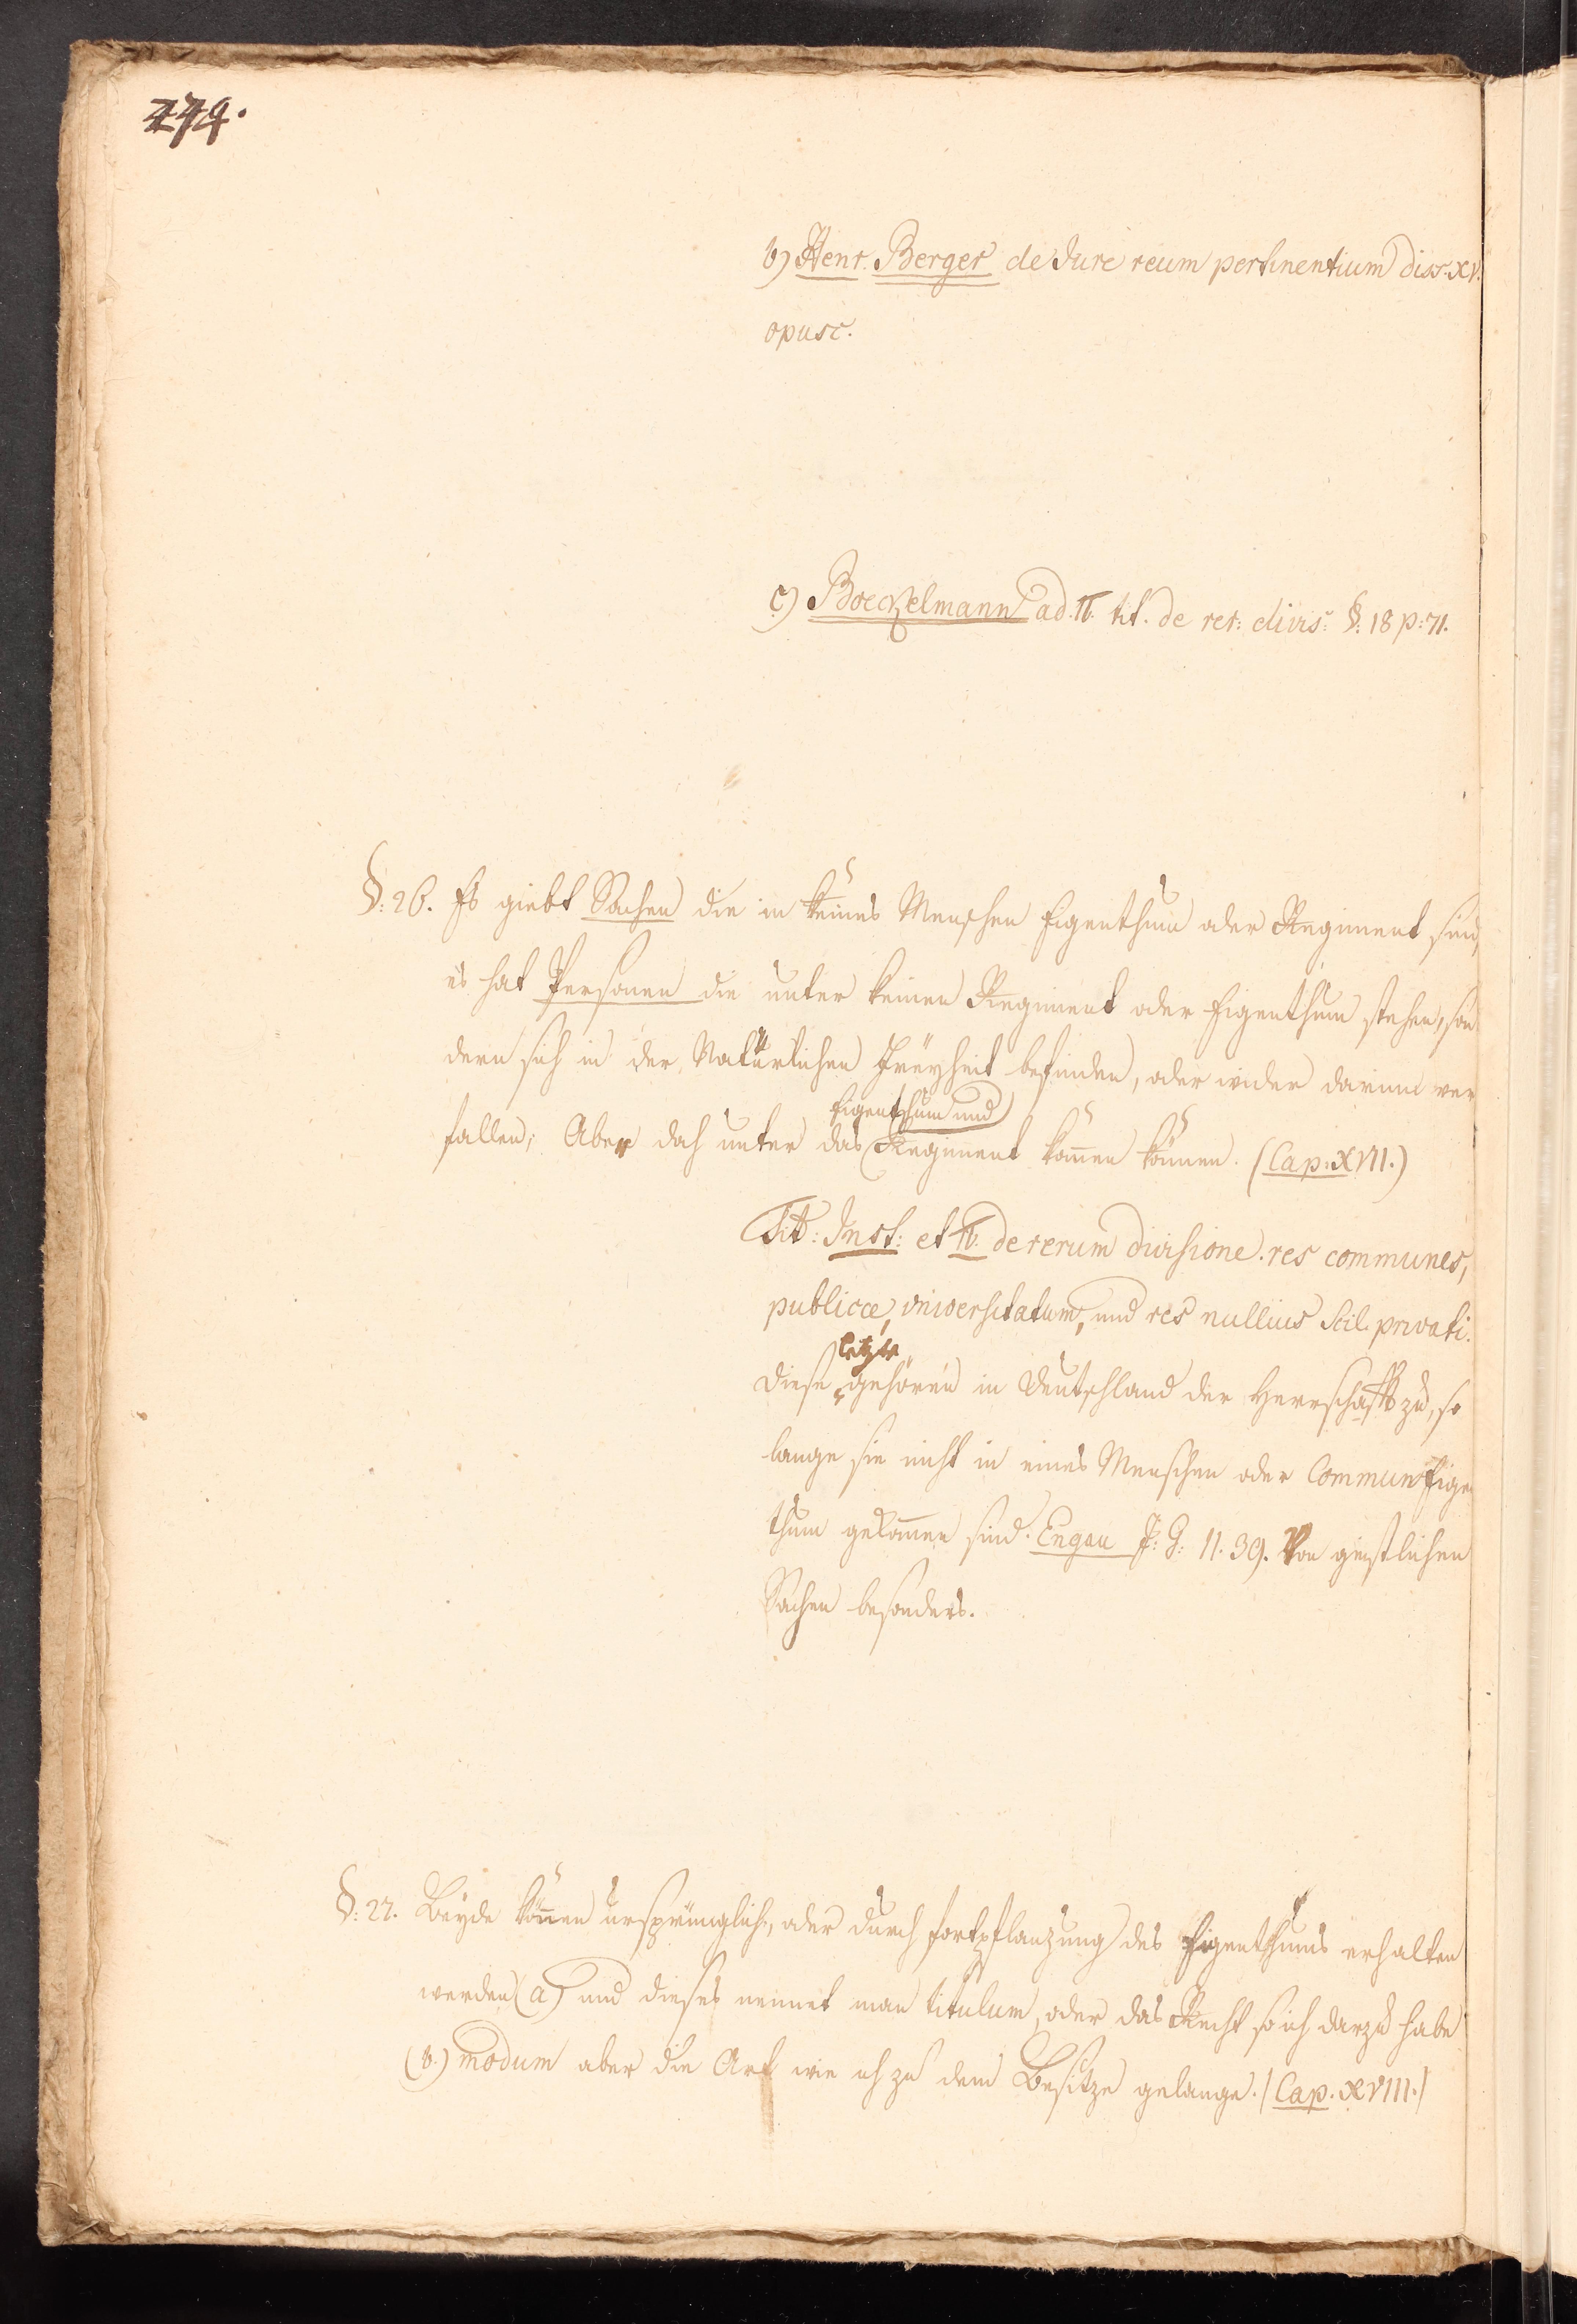 b) Henr. Berger de Jure reum pertinentium diss. XV.
opusc.
c) Boeckelmann ad. π. tit. de rer: divis: §: 18 p: 71.
§: 26. Es giebt Sachen die in keines Menschen Eigenthum oder Regiment sind,
es hat Personen die unter keinen Regiment oder Eigenthum stehen, son
dern sich in der Natürlichen Freyheit befinden, oder wider darinn ver
Eigenthum und
fallen; Aber doch unter das Regiment kom̄en können. (Cap: XVII.)
Tit: Inst: et π. de rerum divisione. res communes,
publicæ, vniversitatum, und res nullius scil. privati.
letzte
Diese gehören in Deutschland der Herrschafft zu, so
lange sie nicht in eines Menschen oder Commun Eigen
thum gekom̄en sind. Engau J: G: 11. 39. Von geistlichen
Sachen besonders.
§: 27. Beyde kön̄en ursprünglich, oder durch fortpflanzung des Eigenthums erhalten
werden (a) und dieses nennet man titulum, oder das Recht so ich darzu habe
(b.) modum aber die Art wie ich zu dem Besitze gelange. (Cap. XVIII.)